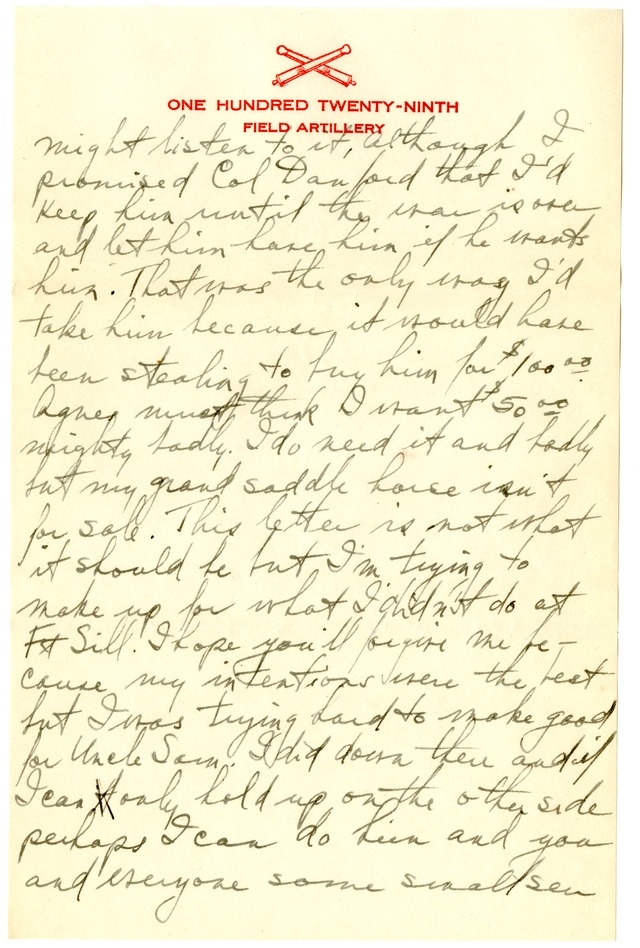 ONE HUNDRED TWENTY-NINTH
FIELD ARTILLERY
might listen to it, although I
promised Col Danford that I'd
keep him until the war is over
and let him have him if he wants
him. That was the only way I'd
take him because it would have
been stealing to buy him for $100 00.
Agnes must think I want $50 00
mighty badly. I do need it and badly
but my grand saddle horse isn't
for sale. This letter is not what
it should be but I'm trying to
make up for what I didn't do at
Ft Sill. I hope you'll forgive me be-
cause my intentions were the best
but I was trying hard to make good
for Uncle Sam. I did down there and if
I can only hold up on the other side
perhaps I can do him and you
and everyone some small ser